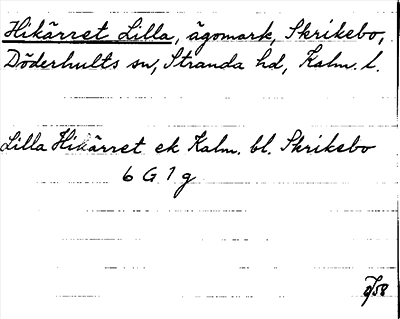 Hikärret Lilla, ägomark, Skrikebo,
Döderhults sn, Stranda hd, Kalm. l.
Lilla Hikärret ek Kalm. bl. Skrikebo
6 G 1 g